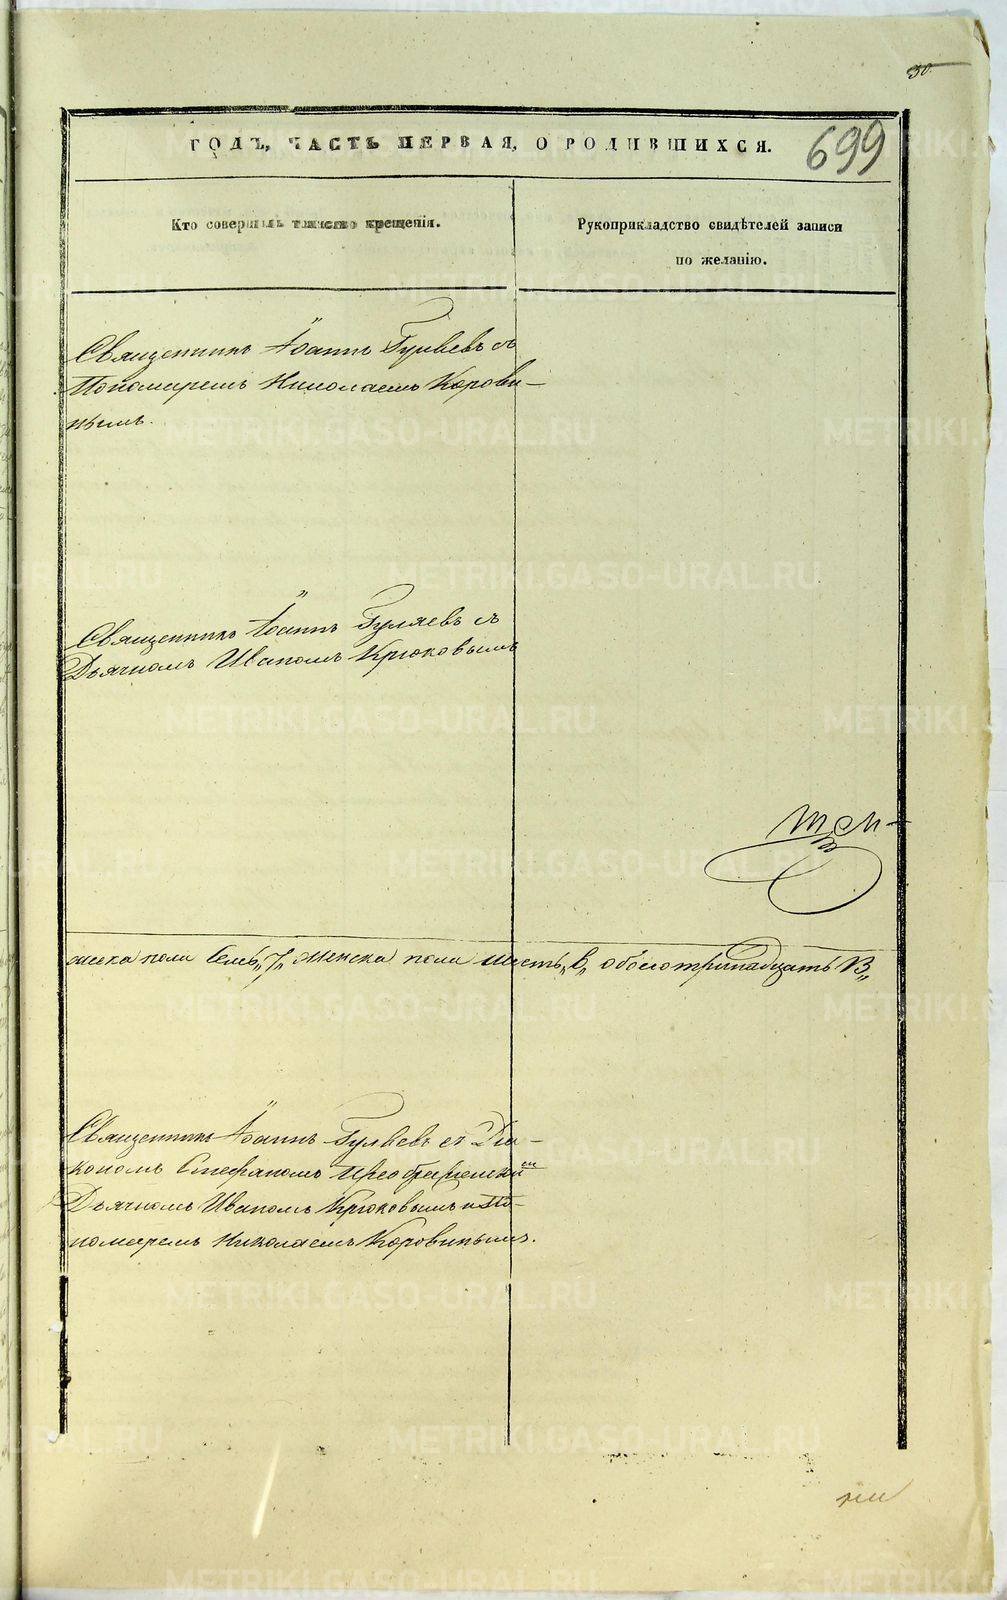 30.
ГОДЪ, ЧАСТЬ ПЕРВАЯ, О РОДИВШИХСЯ.
699
Кто совершалъ таинство крещенія.
Рукоприкладство свидѣтелей записи
по желанію.
Священникъ Іоаннъ Гуляевъ съ
Пономаремъ Николаемъ Корови-
нымъ.
Священникъ Іоаннъ Гуляевъ съ
Дьячкомъ Иваномъ Крюковымъ
мужеска пола Семь „7„ Женска пола шесть „6„ обоего тринадцать 13„
Священникъ Іоаннъ Гуляевъ съ Діа-
кономъ Стефаномъ Преображенским
Дьячкомъ Иваномъ Крюковымъ и По-
номаремъ Николаемъ Коровинымъ.
METRIKI.GASO-URAL.RU